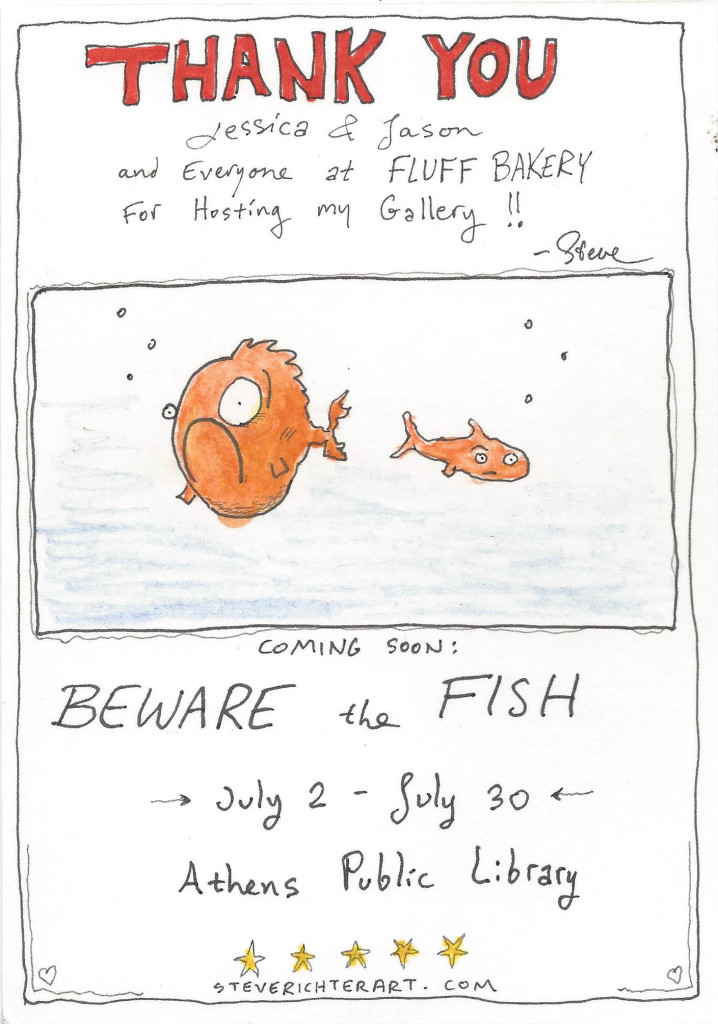 THANK YOU
Jessica & Jason
and Everyone at FLUFF BAKERY
For Hosting my Gallery !!
- Steve
COMING SOON:
BEWARE the FISH
→ July 2 - July 30 ←
Athens Public Library
STEVERICHTERART. COM